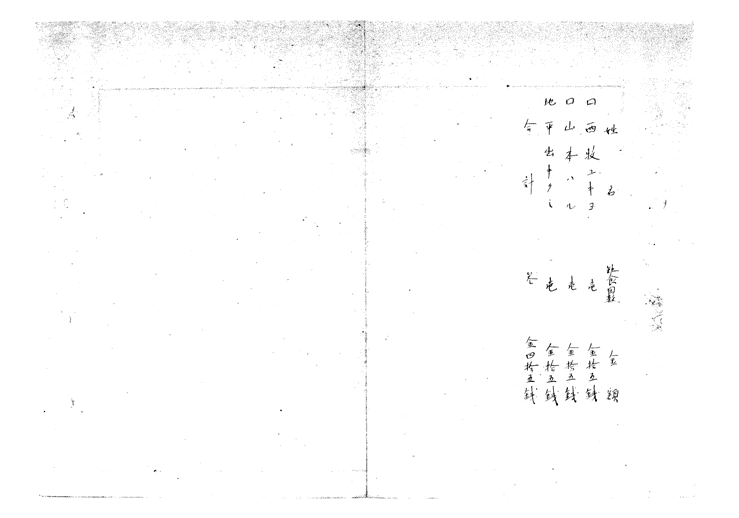 姓名 給食回数 金額
口西牧ユキヨ 壱 金拾五銭
口山本ハル 壱 金拾五銭
地平出キクミ 壱 金拾五銭
合計 参 金四拾五銭